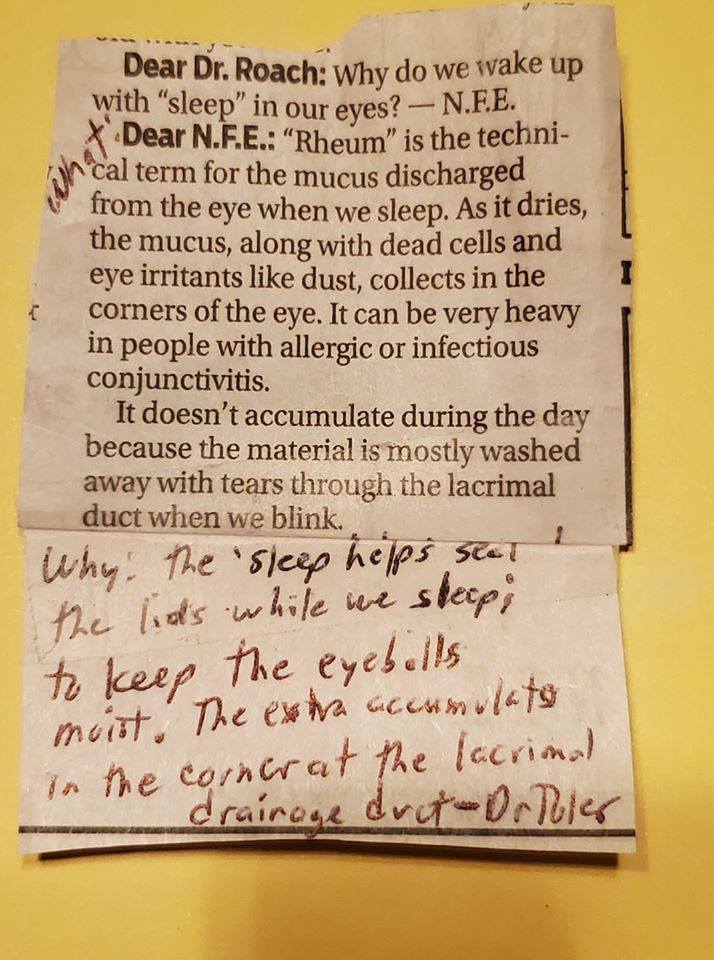 Dear Dr. Roach: Why do we wake up
with “sleep” in our eyes? — N.F.E.
What
Dear N.F.E.: “Rheum” is the techni-
cal term for the mucus discharged
from the eye when we sleep. As it dries,
the mucus, along with dead cells and
eye irritants like dust, collects in the
corners of the eye. It can be very heavy
in people with allergic or infectious
conjunctivitis.
It doesn’t accumulate during the day
because the material is mostly washed
away with tears through the lacrimal
duct when we blink.
Why: The 'sleep helps seal
the lids while we sleep;
to keep the eyeballs
moist. The extra accumulates
in the corner at the lacrimal
drainage duct - Dr